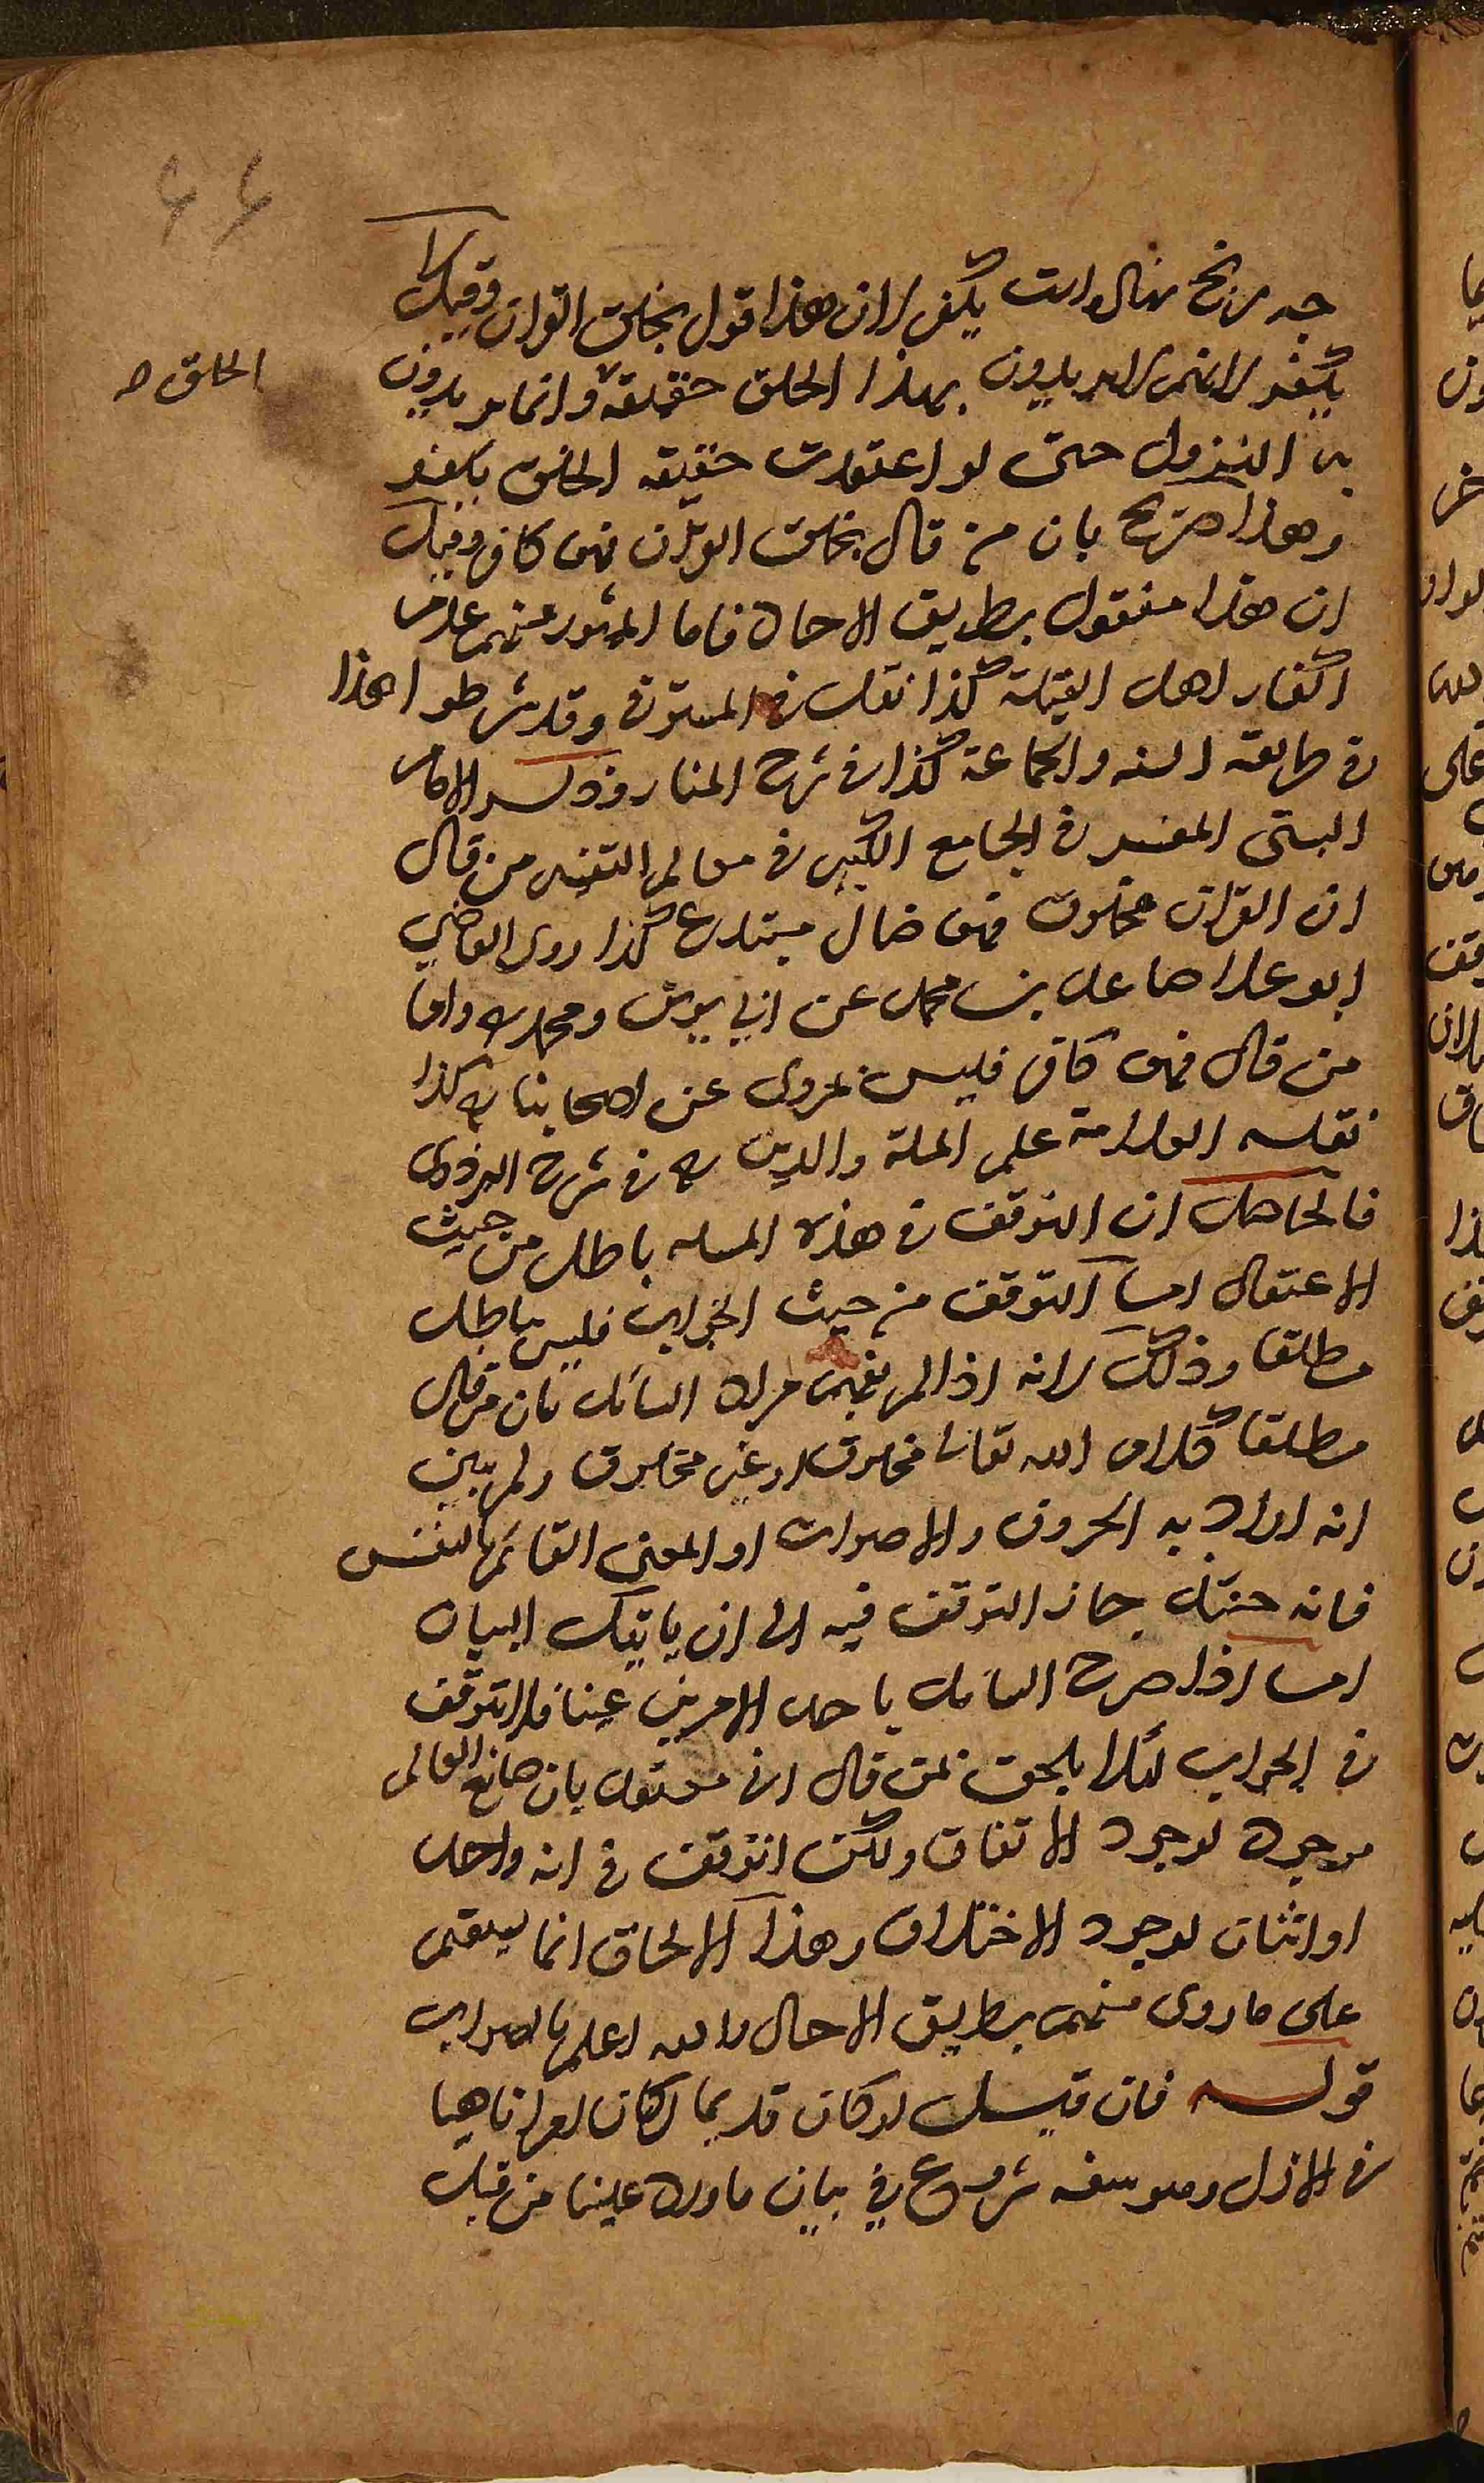 يكفر لان هذا قول بخلق القران وقيل لا
يكفر لانهم لا يريدون بهذا الخلق حقيقة وانما يريدون
الخلق صح
به النزول حتى لو اعتقدت حقيقة الخلق يكفر
وهذا صريح بان من قال بخلق القران فهو كافر وقيل
ان هذا منقول بطريق الاحاد فاما المشهور عنهم عدم
اكفار اهل القبلة كذا نقل في وقد شرطوا هذا
في طريقة السنه والجماعة كذا في شرح المنار وذكر الامام
البستي المفسر في الجامع الكبير في معالم التفسير من قال
ان القران مخلوق فهو ضال مبتدع كذا روى القاضي
ابو العلا صاعد بن محمد عن ابي يوسف ومحمد رح واما
من قال فهو كافر فليس بمروى عن اصحابنا رح كذا
نقله العلامة علم الملة والدين رح في شرح البزدوى
فالحاصل ان التوقف في هذه المسله باطل من حيث
الاعتقاد اما التوقف من حيث الجواب فليس بباطل
مطلقا وذلك لانه اذا لم يفهم مراد السائل بان من قال
مطلقا كلام الله تعالى مخلوق او غير مخلوق ولم يبين
انه اراد به الحروف والاصوات او المعنى القائم بالنفس
فانه حينئذ جاز التوقف فيه الى ان ياتيك البيان
اما اذا صرح السائل باحد الامرين عينا فلا تتوقف
في الجواب لئلا يلحق بمن قال اني معتقد بان صانع العالم
موجود لوجود الاتفاق ولكن اتوقف في انه واحد
او اثنان لوجود الاختلاف وهذا الالحاق انما يستقيم
على ما روى منهم بطريق الاحاد والله اعلم بالصواب
قوله فان قيل لو كان قديما لكان امرا ناهيا
في الازل وهو سفه شروع في بيان ما ورد علينا من قبل